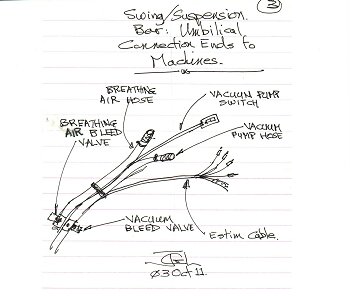 3
Swing/Suspension.
Bar: Umbilical
Connection Ends to
Machines.
BREATHING
AIR HOSE
VACUUM PUMP
SWITCH
BREATHING
AIR BLEED
VALVE
VACUUM
PUMP HOSE
VACUUM
BLEED VALVE
Estim Cable.
03 Oct 11.